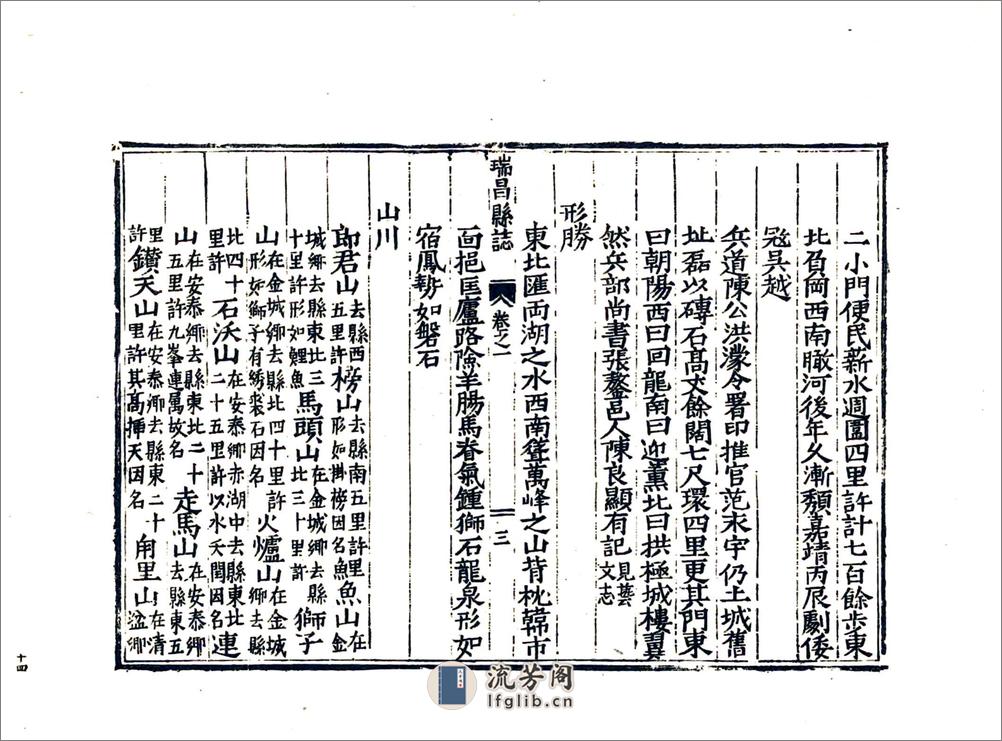 二小門便民新水週圍四里許計七百餘步東
北負岡西南瞰河後年久漸頹嘉靖丙辰劇倭
寇吳越
兵道陳公洪濛令署印推官范永宇仍土城舊
址磊以磚石髙丈餘闊七尺環四里更其門東
曰朝陽西曰回龍南曰迎薰北曰拱極城樓翼
然兵部尚書張鏊邑人陳良顯有記見藝文志
形勝
東北匯両湖之水西南聳萬峰之山背枕韓市
面挹匡廬路險羊腸馬脊氣鍾獅石龍泉形如
宿鳳勢如磐石
山川
郎君山去縣西五里許榜山去縣南五里許形如掛榜因名魚山在金
城鄉去縣東北三十里許形如鯉魚馬頭山在金城鄉去縣北三十里許獅子
山在金城鄉去縣北四十里許形如獅子有綉裘石因名火爐山在金城鄉去縣
北四十里許石沃山在安泰鄉赤湖中去縣東北二十五里許以水夭閏因名連
山在安泰鄉去縣東北二十五里許九峯連屬故名走馬山在安泰鄉去縣東五
里許鑽天山在安泰鄉去縣東二十里許其髙揷天因名甪里山在清湓鄉
瑞昌縣誌
卷之一
三
十四
流芳阁
lfglib.cn